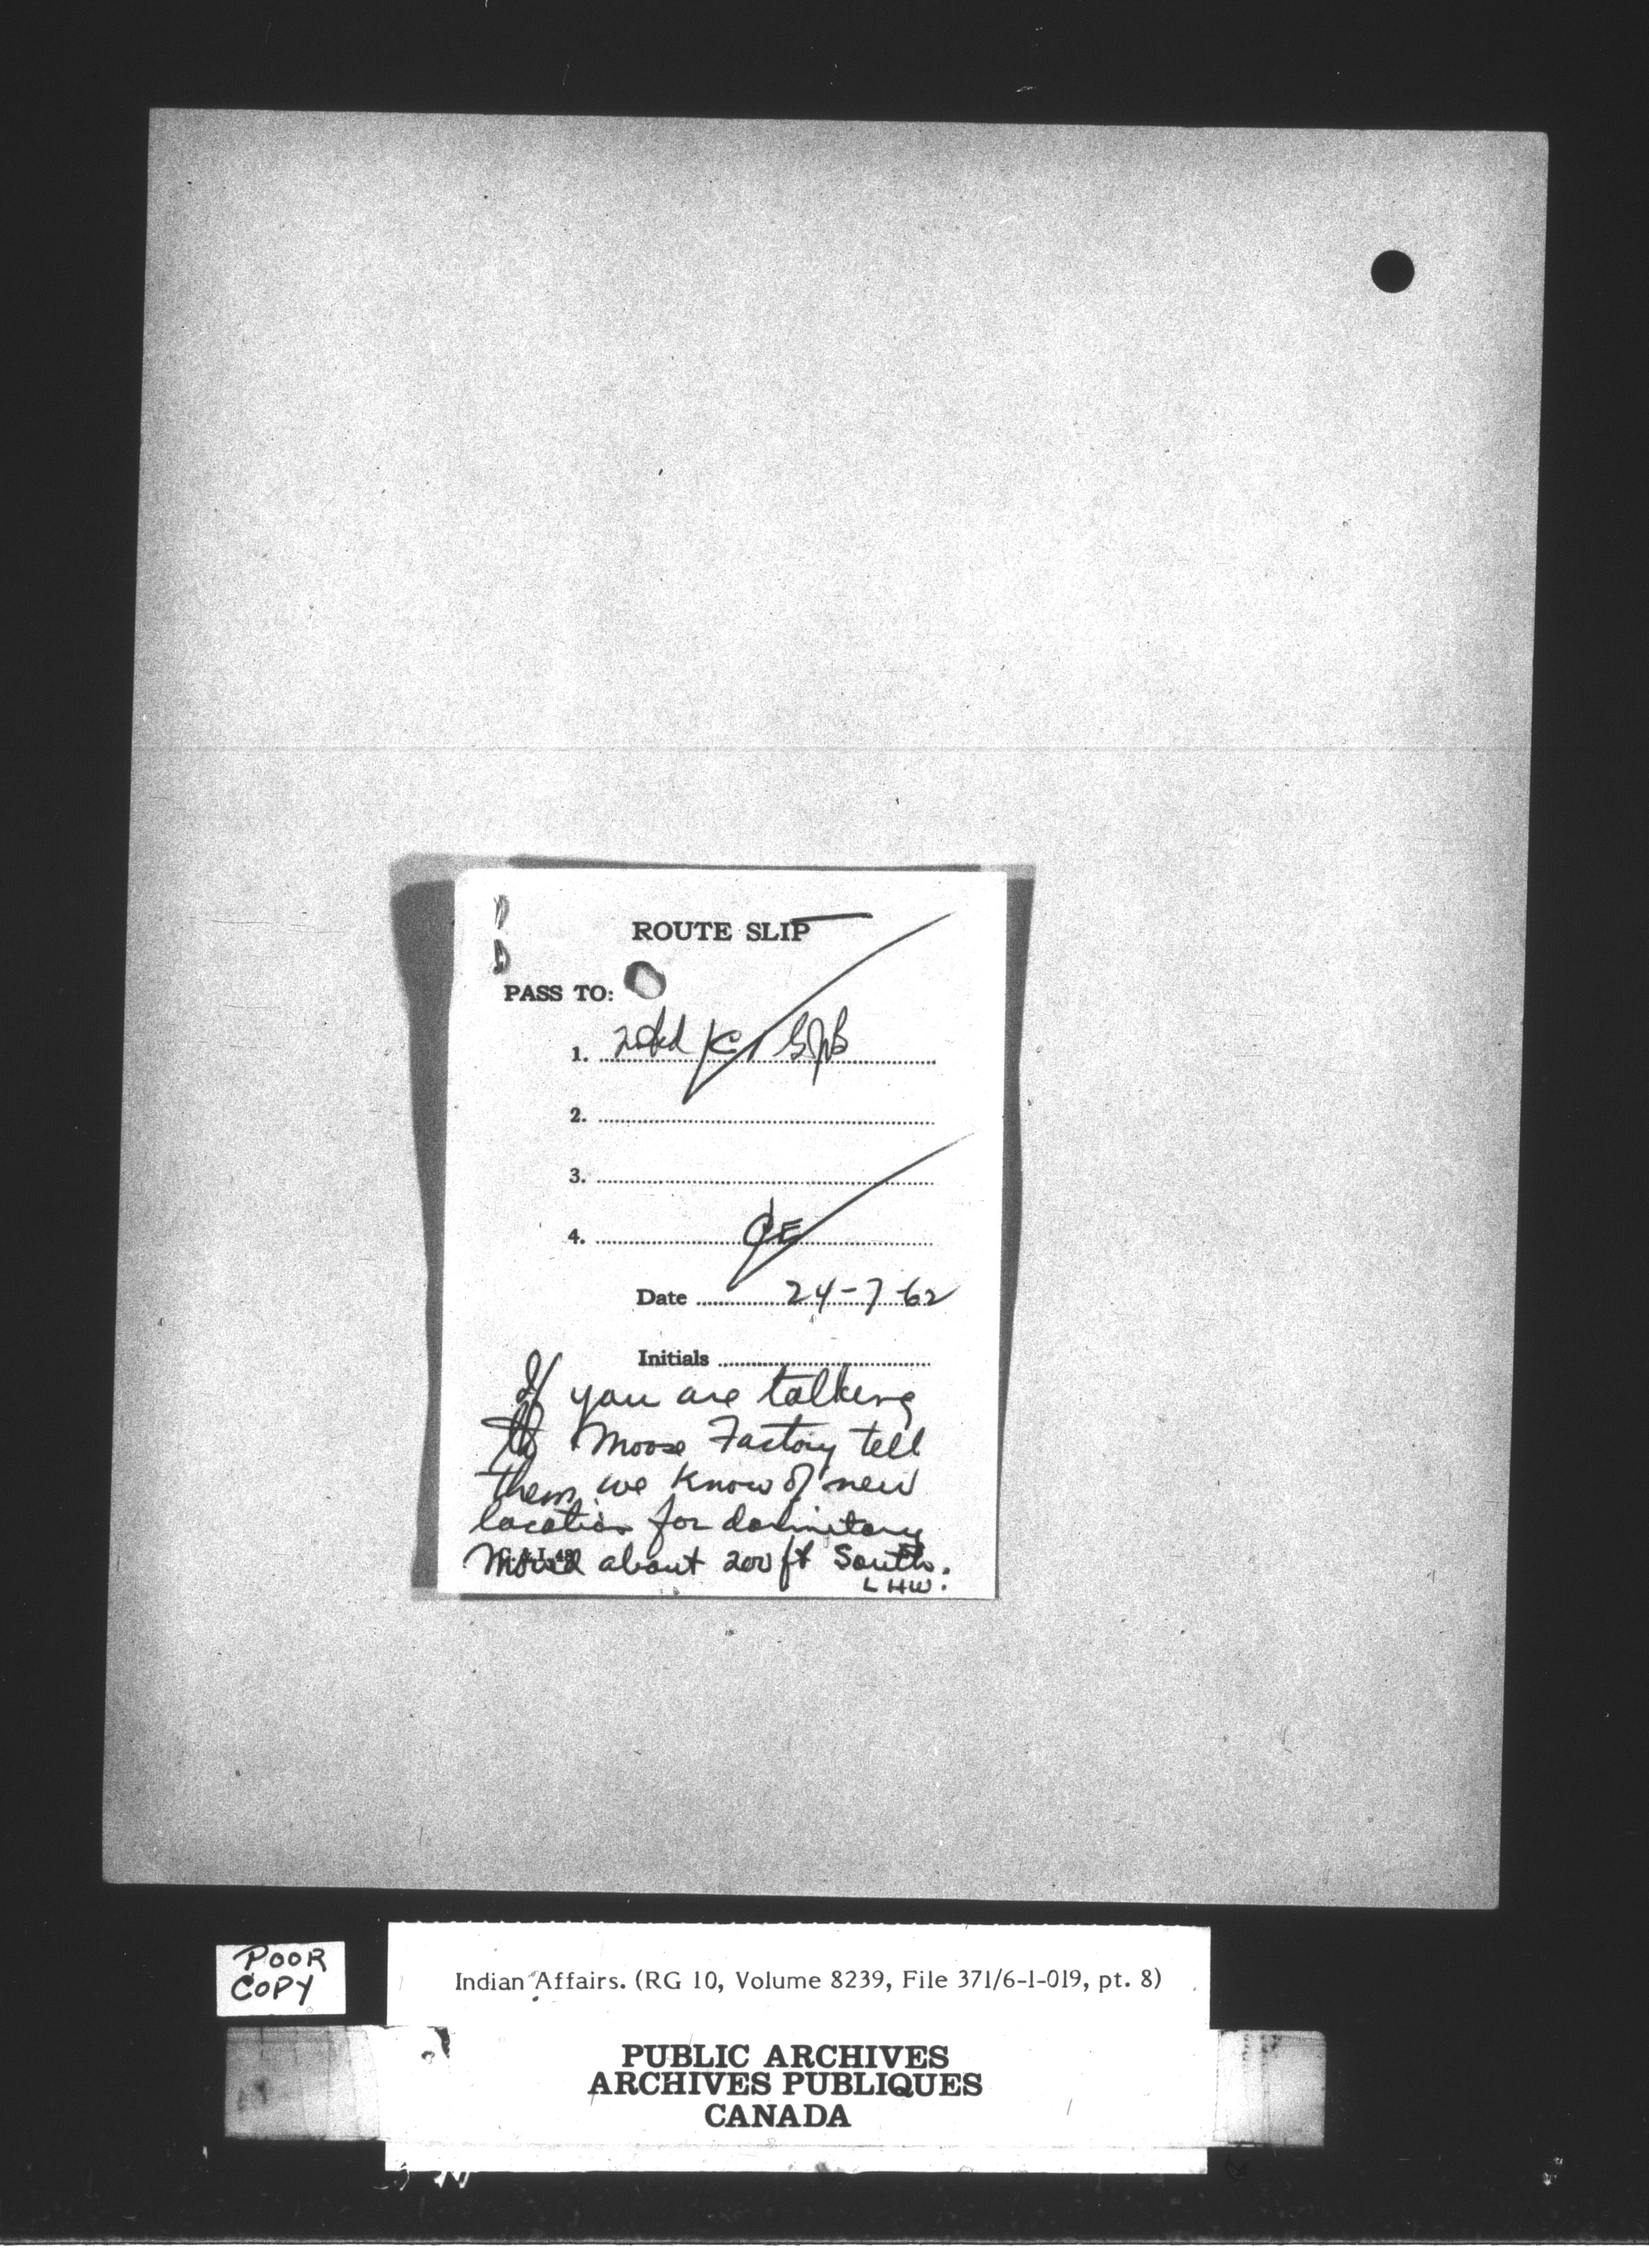 ROUTE SLIP
PASS TO:
1. GJB
2.
3.
4. CE
Date 24-7-62
Initials
If you are talking
to Moose Factory tell
them we know of new
location for dormitory
moved about 200 ft South.
LHW.
POOR
COPY
Indian Affairs. (RG 10, Volume 8239, File 371/6-1-019, pt. 8)
PUBLIC ARCHIVES
ARCHIVES PUBLIQUES
CANADA